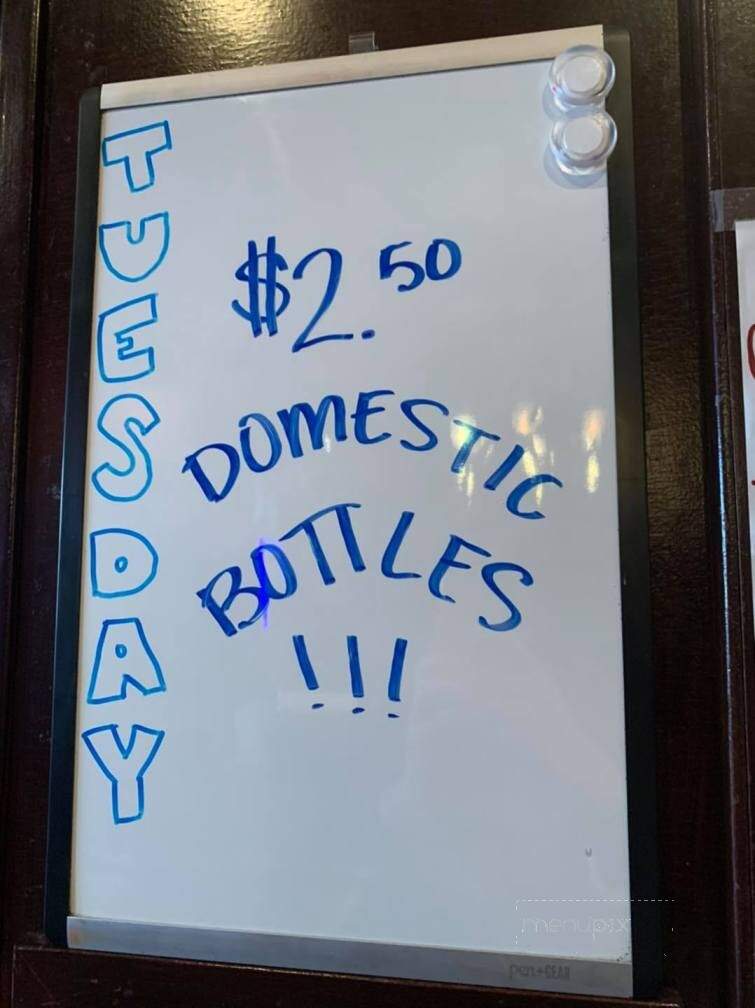 TUESDAY
$2.50
DOMESTIC
BOTTLES
!!!
menupix
Pen+GEAR